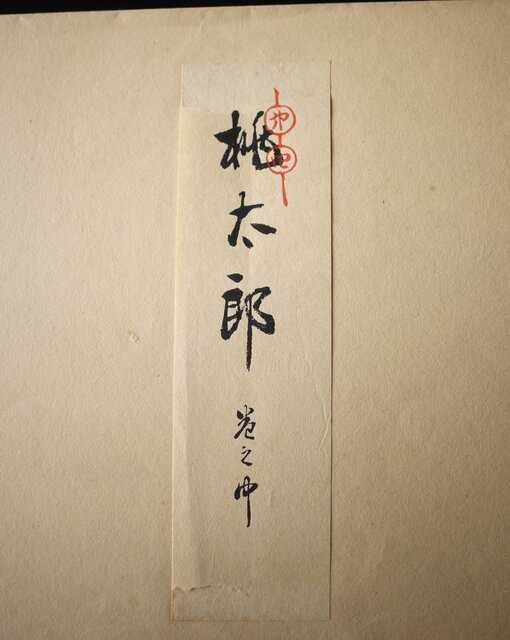 桃太郎
巻之中